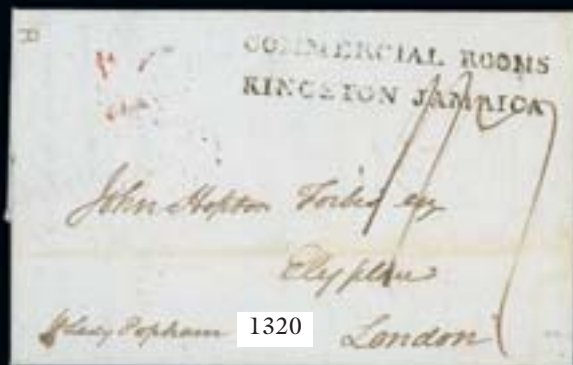 COMMERCIAL ROOMS
KINGSTON JAMAICA
John Hopton Forbes esq
Ely place
Lady Popham
1320
London